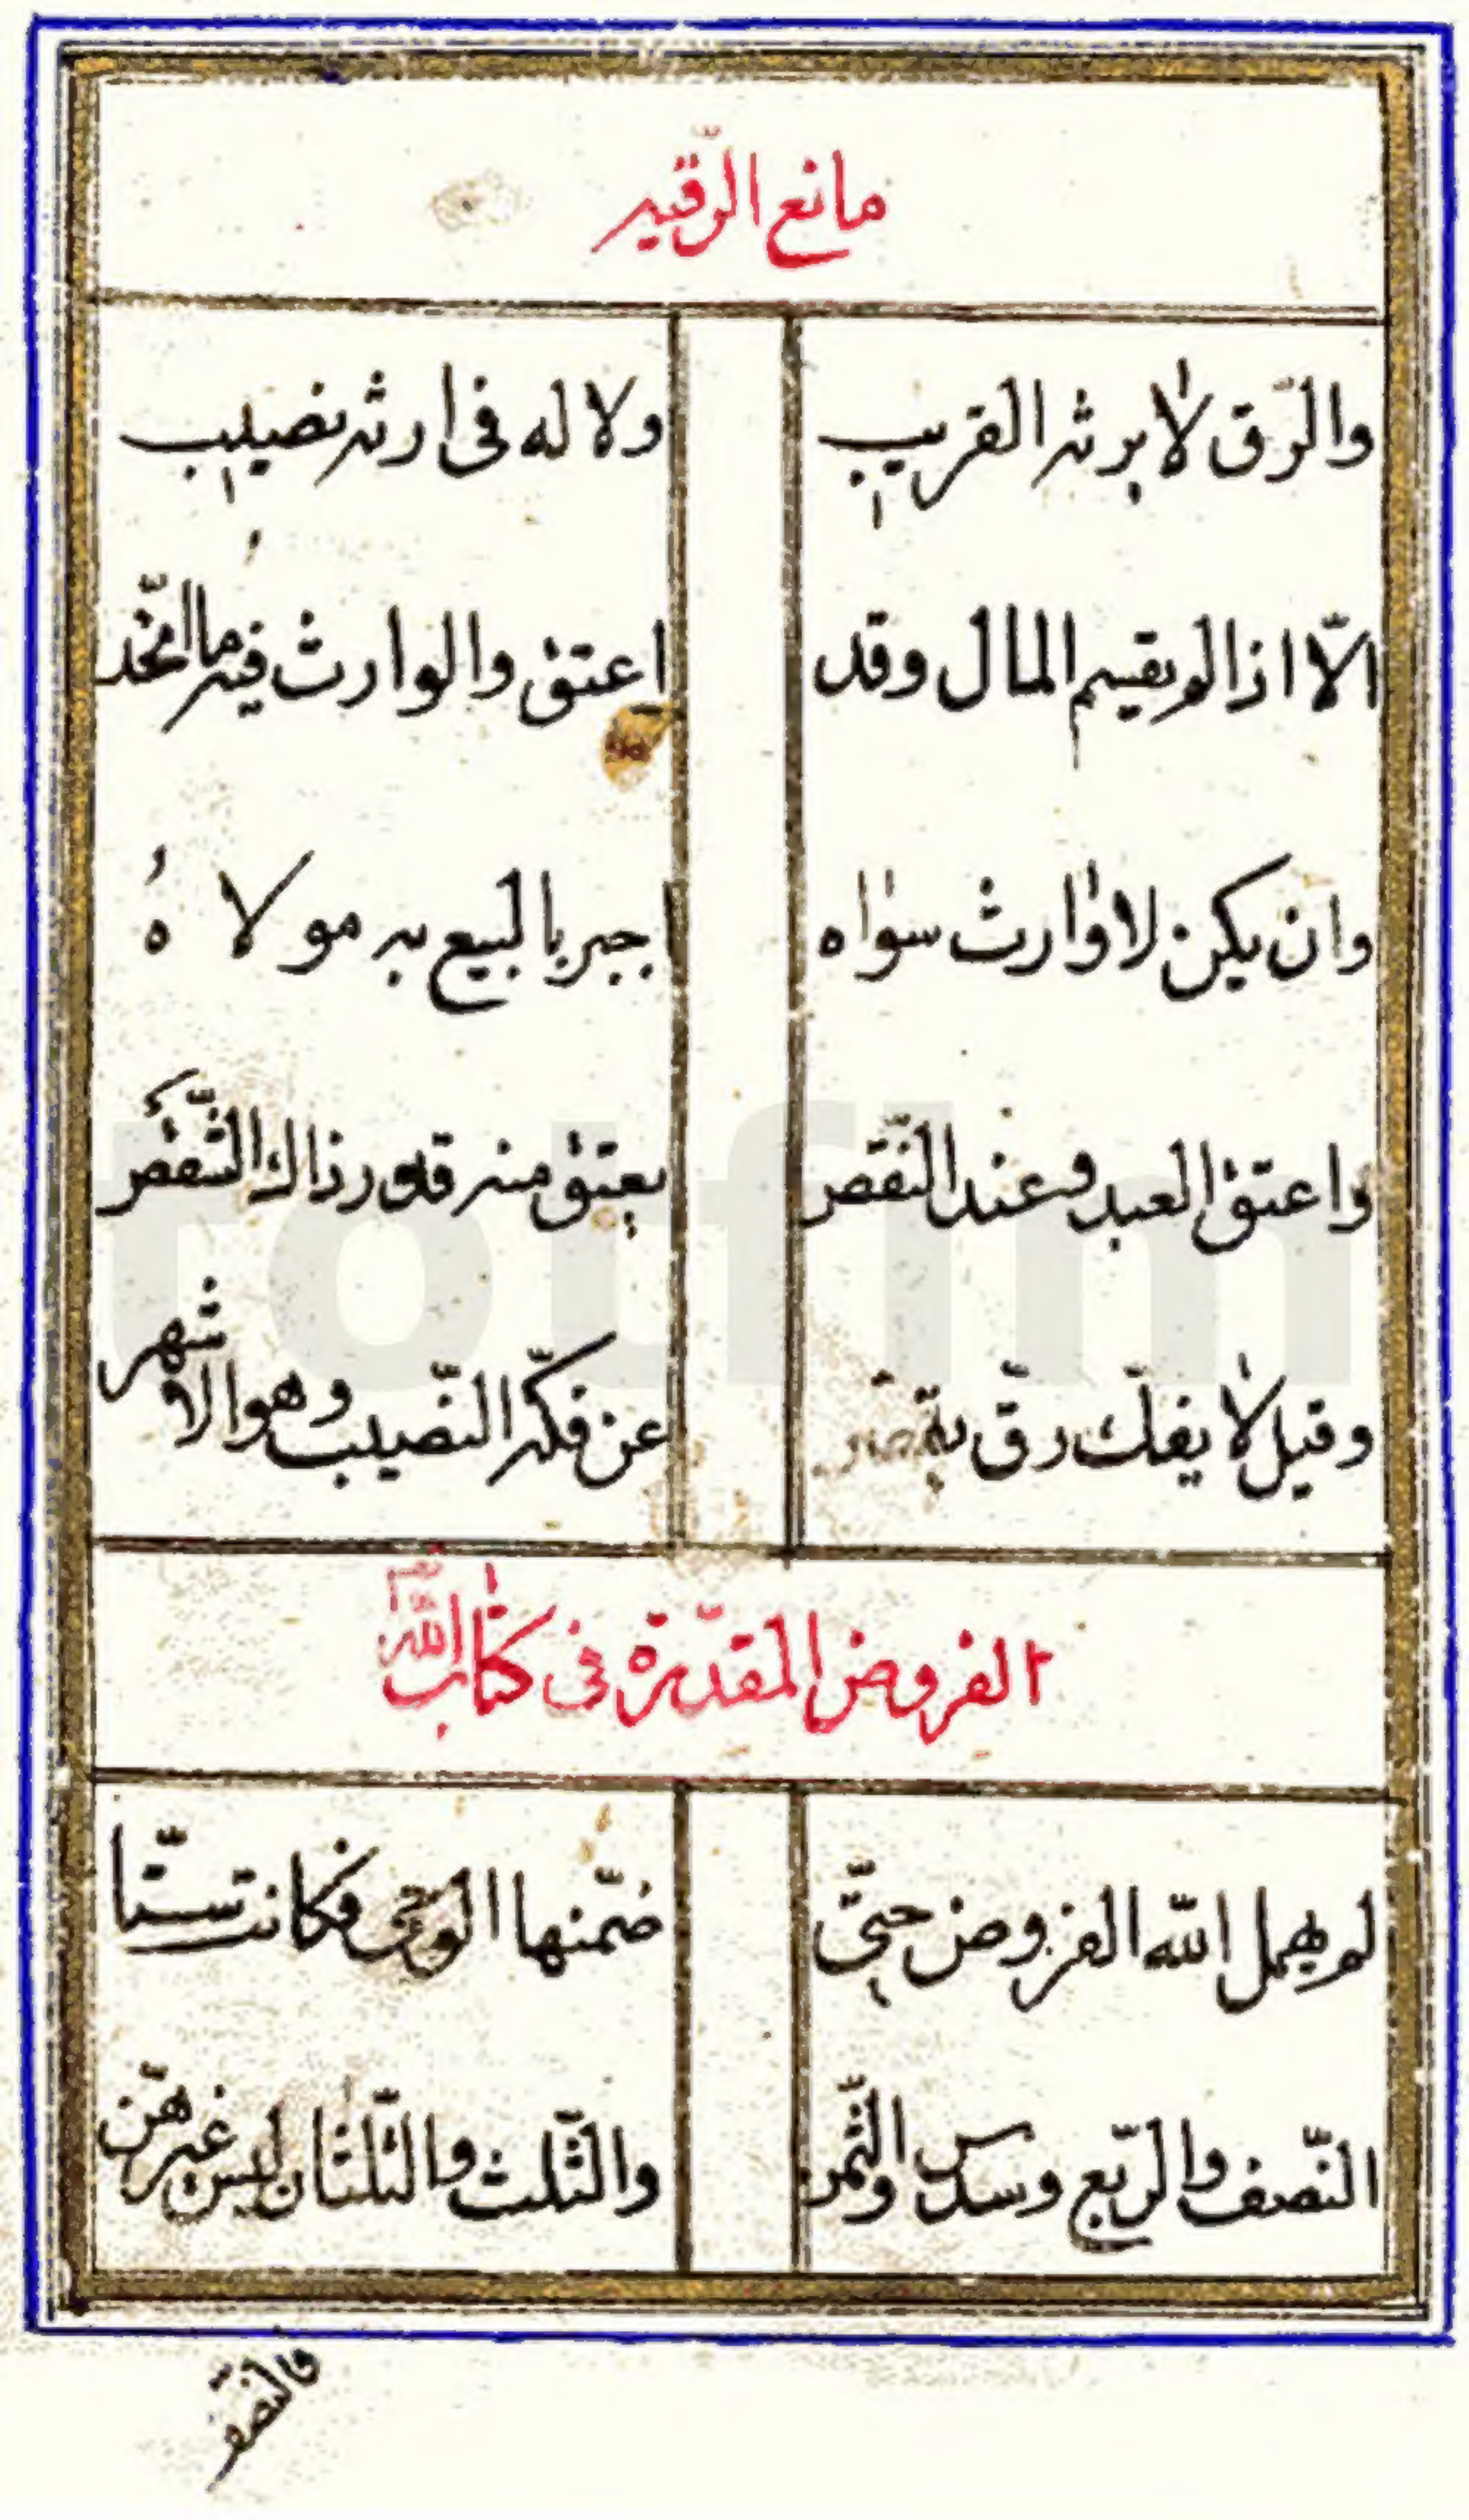 مانع الرّقيه
والرّق لا يرثه القريب ولا له فى ارثه نصيب
الّا اذا لم يقسم المال وقد اعتق والوارث فيهم ما اتّحد
وان يكن لا وارث سواه اجبر بالبيع به مولاهُ
واعتق العبد وعند النّقص يعتق منه قدر ذاك
وقيل لا يفك رقّ عن فكّه النّصيب وهو الاشهر
الفروض المقدّرة فى كتاب اللّه
لم يهمل اللّه الفروض حتّى ضمّنها الوحى فكانت ستّا
النّصف والرّبع وسدس والثّمن والثّلث والثّلثان ليس غيرهنّ
فالنصف